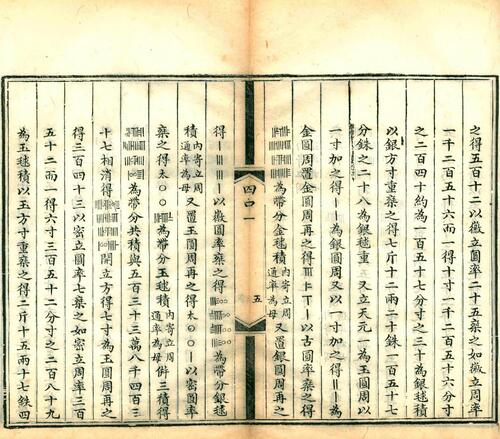 之得五百一十二以徽立圓率乘之如徽立周率
一千二百五十六而一得十寸一千二百五十六分寸
之二百四十約為一百五十七分寸之三十為銀毬積
以銀方寸重乘之得七斤十二兩二十銖一百五十七
分銖之二十八為銀毬重 又立天元一為玉圓周以
一寸加之得 為銀圓周又以一寸加之得 為
金圓周置金圓周再之得 以古圓率乘之得
為帶分金毬積內寄立周通率為母又置銀圓周再之
得 以徽圓率乘之得 為帶分銀毬
積內寄立周通率為母又置玉圓周再之得太〇〇 以密圓率
乘之得太〇〇 為帶分玉毬積內寄立周通率為母倂三積得
為帶分共積與五百三十三萬八千四百三
十七相消得 開立方得七寸為玉圓周再之
得三百四十三以密立圓率七乘之如密立周率三百
五十二而一得六寸三百五十二分寸之二百八十九
為玉毬積以玉方寸重乘之得二斤十五兩十七銖四
四口一
五